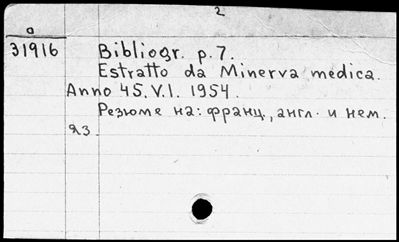 2
a
31916 Bibliogr. p. 7.
Estratto da Minerva medica.
Anno 45. V. I. 1954.
Резюме на: франц., англ. и нем.
яз.